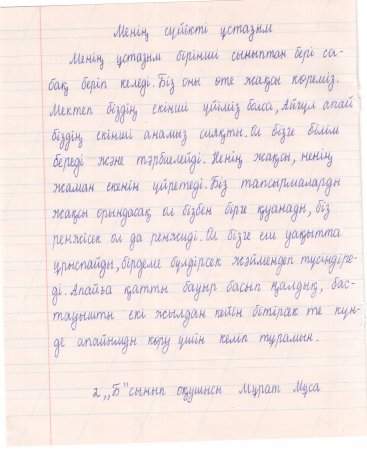 Менің сүйікті ұстазым
Менің ұстазым бірінші сыныптан бері са-
бақ беріп келеді. Біз оны өте жақсы көреміз.
Мектеп біздің екінші үйіміз болса, Айгүл апай
біздің екінші анамыз сияқты. Ол бізге білім
береді және тәрбиелейді. Ненің жақсы, ненің
жаман екенін үйретеді. Біз тапсырмаларды
жақсы орындасақ ол бізбен бірге қуанады, біз
ренжісек ол да ренжиді. Ол бізге еш уақытта
ұрыспайды, бірдеме бүлдірсек жәймендеп түсіндіре-
ді. Апайға қатты бауыр басып қалдық, бас-
тауышты екі жылдан кейін бітірак те күн-
де апайымды көру үшін келіп тұрамын.
2 „Б" сынып оқушысы Мұрат Мұса